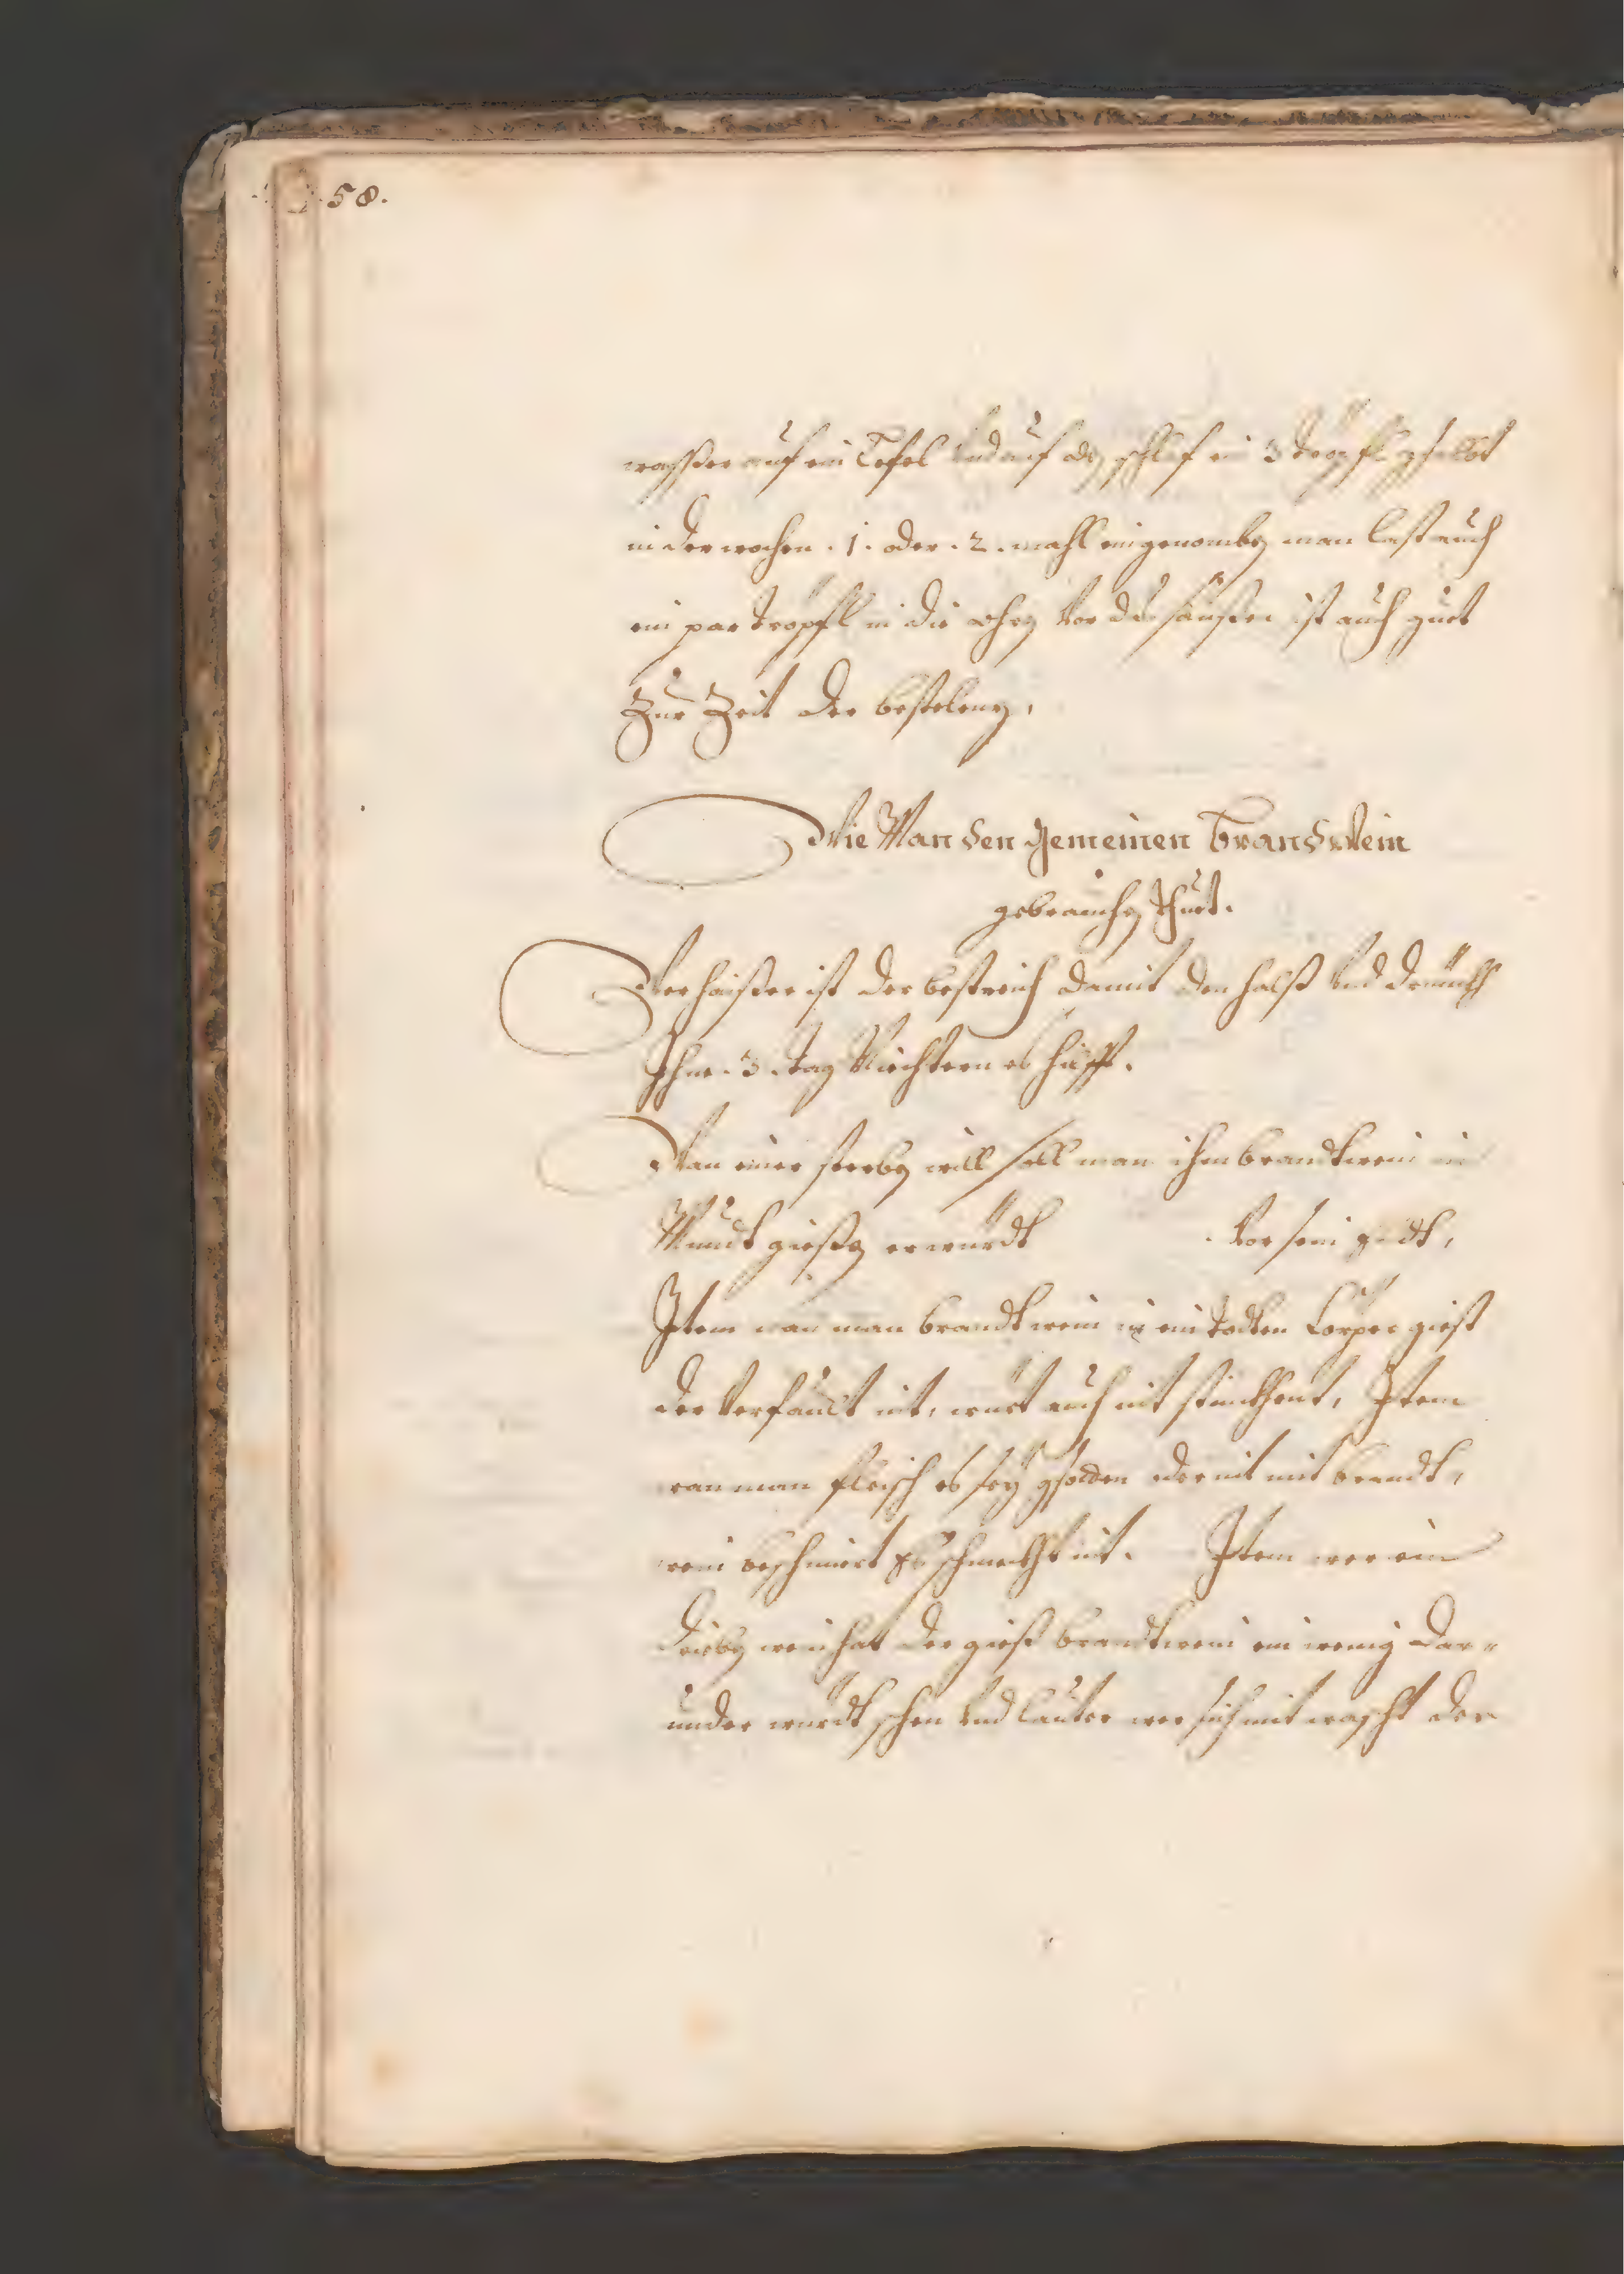 58.
wasser auf ein Lefel vnd auf das schlaf ein 3 tröpfl
in der wochen .1. oder .2. mahl eingenomben man last auch
ein par tröpfl in die ohren vor das saußen ist auch guet
Zur Zeit der
Wie Man den gemeinen Brandwein
gebrauchen thuet.
Wer haißer ist der bestreich damit den halß vnd drinckh
Ihne .3. tag Niechtern es hilfft.
Wan einer sterben will soll man ihm brandtwein in
Mundt gießen er würdt vor sein endt,
Item wan man brandtwein in ein todten Cörper giest
der verfault nit, würt auch nit stinckhent, Item
wan man fleisch es sey gsoden oder nit mit brandt,
wein beschmiert es schmeckht nit. Item wer ein
trieben wein hat der gieß brandtwein ein wenig dar=
under würdt schen vnd lauter wer sich mit wascht der